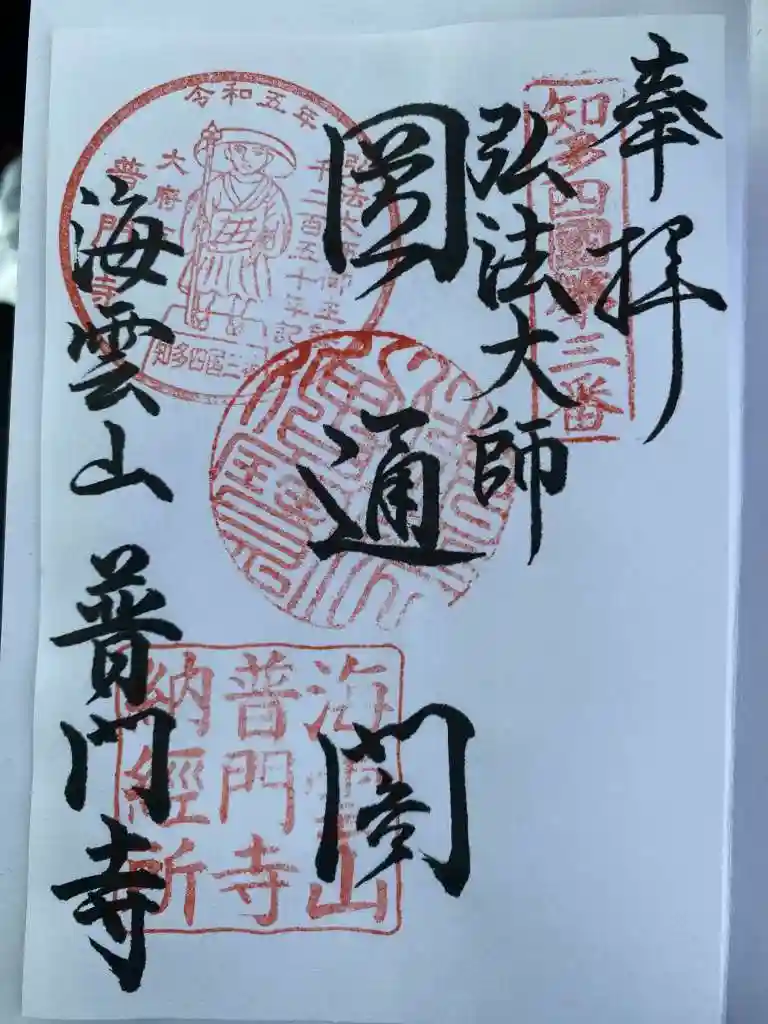 奉拝
知多四國第三番
弘法大師
圓通閣
海雲山 普門寺
令和五年
弘法大師御生誕
千二百五十年記
大府
普門寺
海雲山
普門寺
納經所